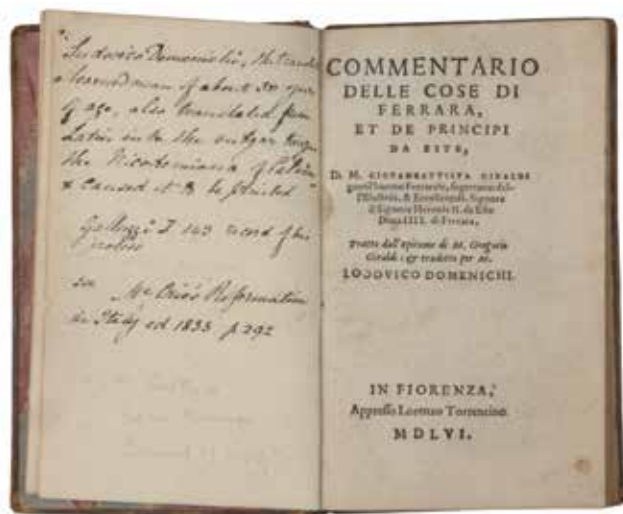 Ludovico Domenichi, the translator
a learned man of about 38 years
of age, also translated from
Latin into the vulgar tongue
the Nicodemiana of Calvin
& caused it to be printed
Galluzzi I 143 record of his
see McCrie's Reformation
in Italy ed 1833 p 292
COMMENTARIO
DELLE COSE DI
FERRARA,
ET DE PRINCIPI
DA ESTE,
D. M. GIOVAMBATTISTA GIRALDI
gentil'huomo Ferrarese, segretario del-
l'Illustriss. & Eccellentiss. Signore
il Signore Hercole II. da Este
Duca IIII. di Ferrara,
Tratto dall'epitome di M. Gregorio
Giraldi; & tradotto per M.
LODOVICO DOMENICHI.
IN FIORENZA,
Appresso Lorenzo Torrentino
MDLVI.